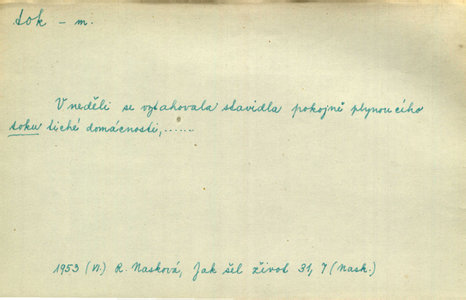 tok - m.
V neděli se vztahovala stavidla pokojně plynoucího
toku tiché domácnosti,......
1953 (VI.) R. Nasková, Jak šel život 31, 7 (Nask.)